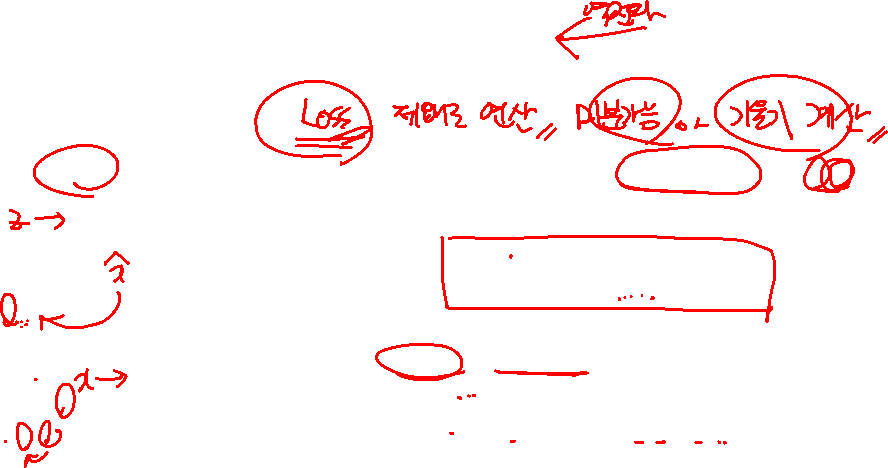 역전파
Loss 제대로 연산 미분가능 기울기 계산
z →
x̂
x →